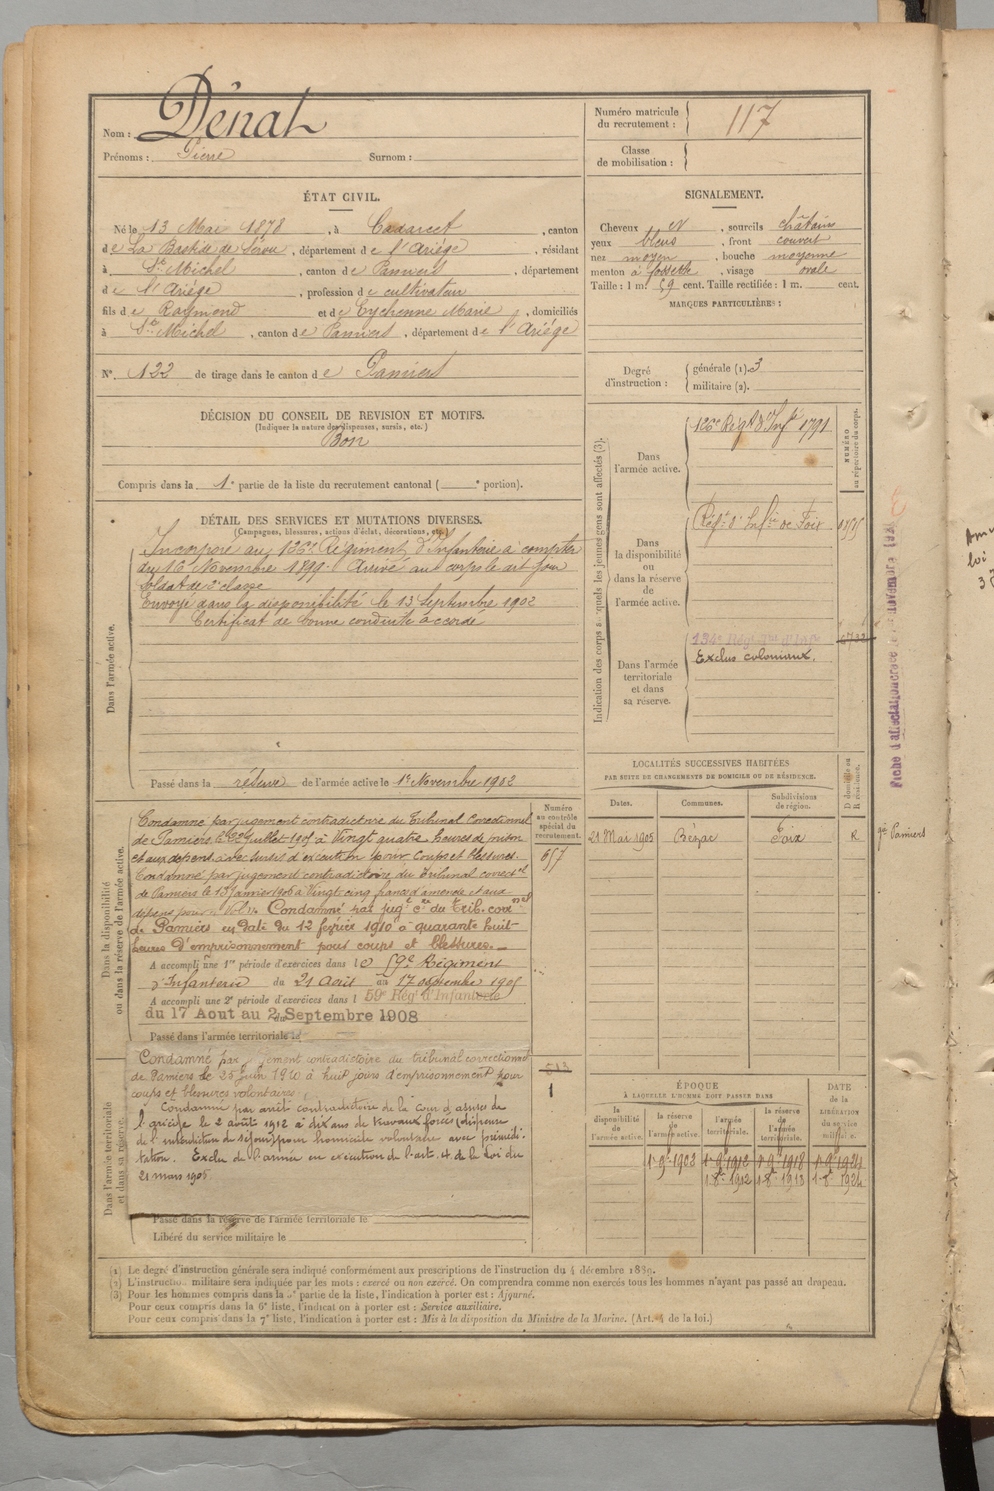 Nom : Dénat
Prénoms : Pierre Surnom :
Numéro matricule du recrutement : 117
Classe de mobilisation :
ÉTAT CIVIL.
Né le 13 Mai 1878, à Cadarcet, canton
de La Bastide de Sérou, département de l'Ariége, résidant
à St Michel, canton de Pamiers, département
de l'Ariége, profession de cultivateur
fils de Raymond et de Eychenne Marie, domiciliés
à St Michel, canton de Pamiers, département de l'Ariége
N° 122 de tirage dans le canton de Pamiers
SIGNALEMENT.
Cheveux N, sourcils châtains
yeux bleus, front couvert
nez moyen, bouche moyenne
menton à fossette, visage ovale
Taille : 1 m. 59 cent. Taille rectifiée : 1 m. cent.
MARQUES PARTICULIÈRES :
Degré d'instruction : générale (1). 3
militaire (2).
DÉCISION DU CONSEIL DE REVISION ET MOTIFS.
(Indiquer la nature des dispenses, sursis, etc.)
Bon
Compris dans la 1e partie de la liste du recrutement cantonal ( e portion).
DÉTAIL DES SERVICES ET MUTATIONS DIVERSES.
(Campagnes, blessures, actions d'éclat, décorations, etc.)
Dans l'armée active.
Incorporé au 126e Régiment d'Infanterie à compter
du 16 Novembre 1899. Arrivé au corps le dit jour
Soldat de 2e classe
Envoyé dans la disponibilité le 13 Septembre 1902
Certificat de bonne conduite accordé
Passé dans la réserve de l'armée active le 1er Novembre 1902
Indication des corps auxquels les jeunes gens sont affectés (3).
NUMÉRO au répertoire du corps.
Dans l'armée active.
126e Régt d'Infie 1791
Dans la disponibilité ou dans la réserve de l'armée active.
Régt d'Infie de Foix
Dans l'armée territoriale et dans sa réserve.
134e Régt
Exclus coloniaux.
Fiche d'affectation
LOCALITÉS SUCCESSIVES HABITÉES
PAR SUITE DE CHANGEMENTS DE DOMICILE OU DE RÉSIDENCE.
Dates. Communes. Subdivisions de région. D domicile ou R résidence.
21 Mai 1905 Bézac Foix R
gie Pamiers
Dans la disponibilité ou dans la réserve de l'armée active.
Numéro au contrôle spécial du recrutement.
657
Condamné par jugement contradictoire du Tribunal Correctionnel
de Pamiers le 22 Juillet 1905 à Vingt quatre heures de prison
et aux dépens avec sursis d'exécution pour Coups et blessures.
Condamné par jugement contradictoire du Tribunal correctel
de Pamiers le 13 Janvier 1906 à Vingt cinq francs d'amende et aux
dépens pour "Vol". Condamné par jugt cre du Trib. cornel
de Pamiers en date du 12 février 1910 à quarante huit
heures d'emprisonnement pour coups et blessures.
A accompli une 1re période d'exercices dans le 59e Régiment
d'Infanterie du 21 Août au 17 septembre 1905
A accompli une 2e période d'exercices dans le 59e Régt d'Infanterie
du 17 Aout au 2 Septembre 1908
Passé dans l'armée territoriale le
Dans l'armée territoriale et dans sa réserve.
Condamné par jugement contradictoire du tribunal correctionnel
de Pamiers le 25 Juin 1910 à huit jours d'emprisonnement pour
coups et blessures volontaires.
Condamné par arrêt contradictoire de la Cour d'assises de
l'ariège le 2 août 1912 à dix ans de travaux forcés (dispense
de l'interdiction de séjour) pour homicide volontaire avec prémédi-
tation. Exclu de l'armée en exécution de l'art. 4 de la loi du
21 mars 1905
1
Passé dans la réserve de l'armée territoriale le
Libéré du service militaire le
ÉPOQUE
À LAQUELLE L'HOMME DOIT PASSER DANS
DATE de la LIBÉRATION du service militaire.
la disponibilité de l'armée active. la réserve de l'armée active. l'armée territoriale. la réserve de l'armée territoriale.
1er 9e 1902 1er 9e 1912 1er 9e 1918 1er 9e 1924
1 8e 1912 1 8e 1918 1 8e 1924
(1) Le degré d'instruction générale sera indiqué conformément aux prescriptions de l'instruction du 4 décembre 1889.
(2) L'instruction militaire sera indiquée par les mots : exercé ou non exercé. On comprendra comme non exercés tous les hommes n'ayant pas passé au drapeau.
(3) Pour les hommes compris dans la partie de la liste, l'indication à porter est : Ajourné.
Pour ceux compris dans la 6e liste, l'indication à porter est : Service auxiliaire.
Pour ceux compris dans la 7e liste, l'indication à porter est : Mis à la disposition du Ministre de la Marine. (Art. 4 de la loi.)